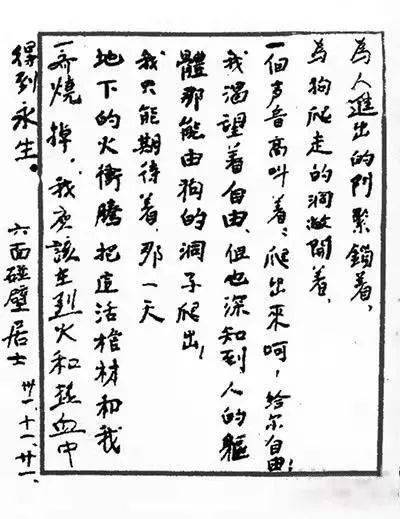 為人進出的門緊鎖着，
為狗爬走的洞敞開着，
一個声音高叫着：爬出來呵，給尔自由！
我渴望着自由，但也深知到人的軀
體那能由狗的洞子爬出！
我只能期待着，那一天
地下的火衝騰把這活棺材和我
一齐燒掉，我应該在烈火和热血中
得到永生。
六面碰壁居士
卅一、十一、廿一、